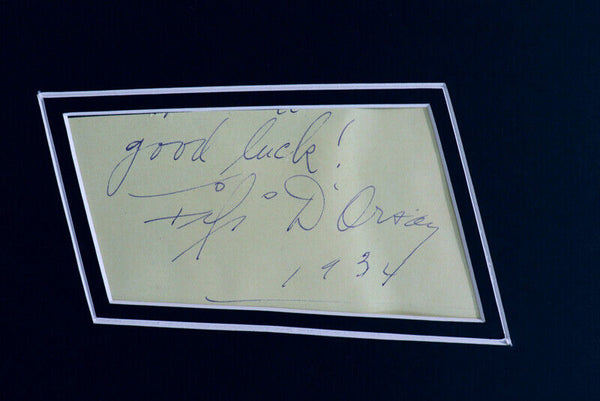 good luck!
Fifi D'Orsay
1934